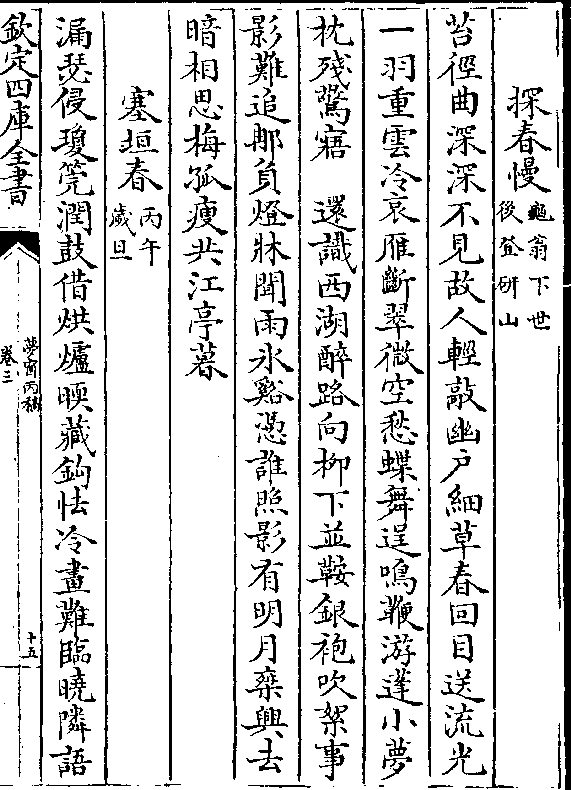 探春慢龜翁下世後登研山
苔徑曲深深不見故人輕敲幽户細草春回目送流光
一羽重雲冷哀雁斷翠微空愁蝶舞逞鳴鞭游蓬小夢
枕殘驚寤　還識西湖醉路向柳下並鞍銀袍吹絮事
影難追那負燈牀聞雨氷谿憑誰照影有明月乘興去
暗相思梅孤瘦共江亭暮
塞垣春丙午歲旦
漏瑟侵瓊筦潤鼓借烘爐暎藏鈎怯冷畫難臨曉隣語
欽定四庫全書
夢窗丙稿
卷三
十五